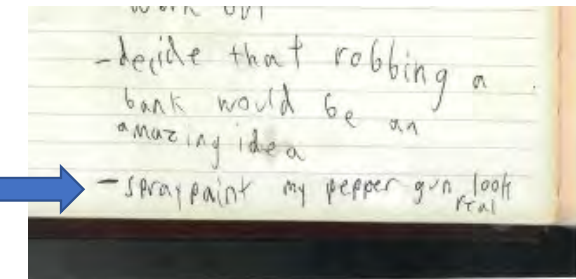 work out
-decide that robbing a
bank would be an
amazing idea
-spraypaint my pepper gun look
real